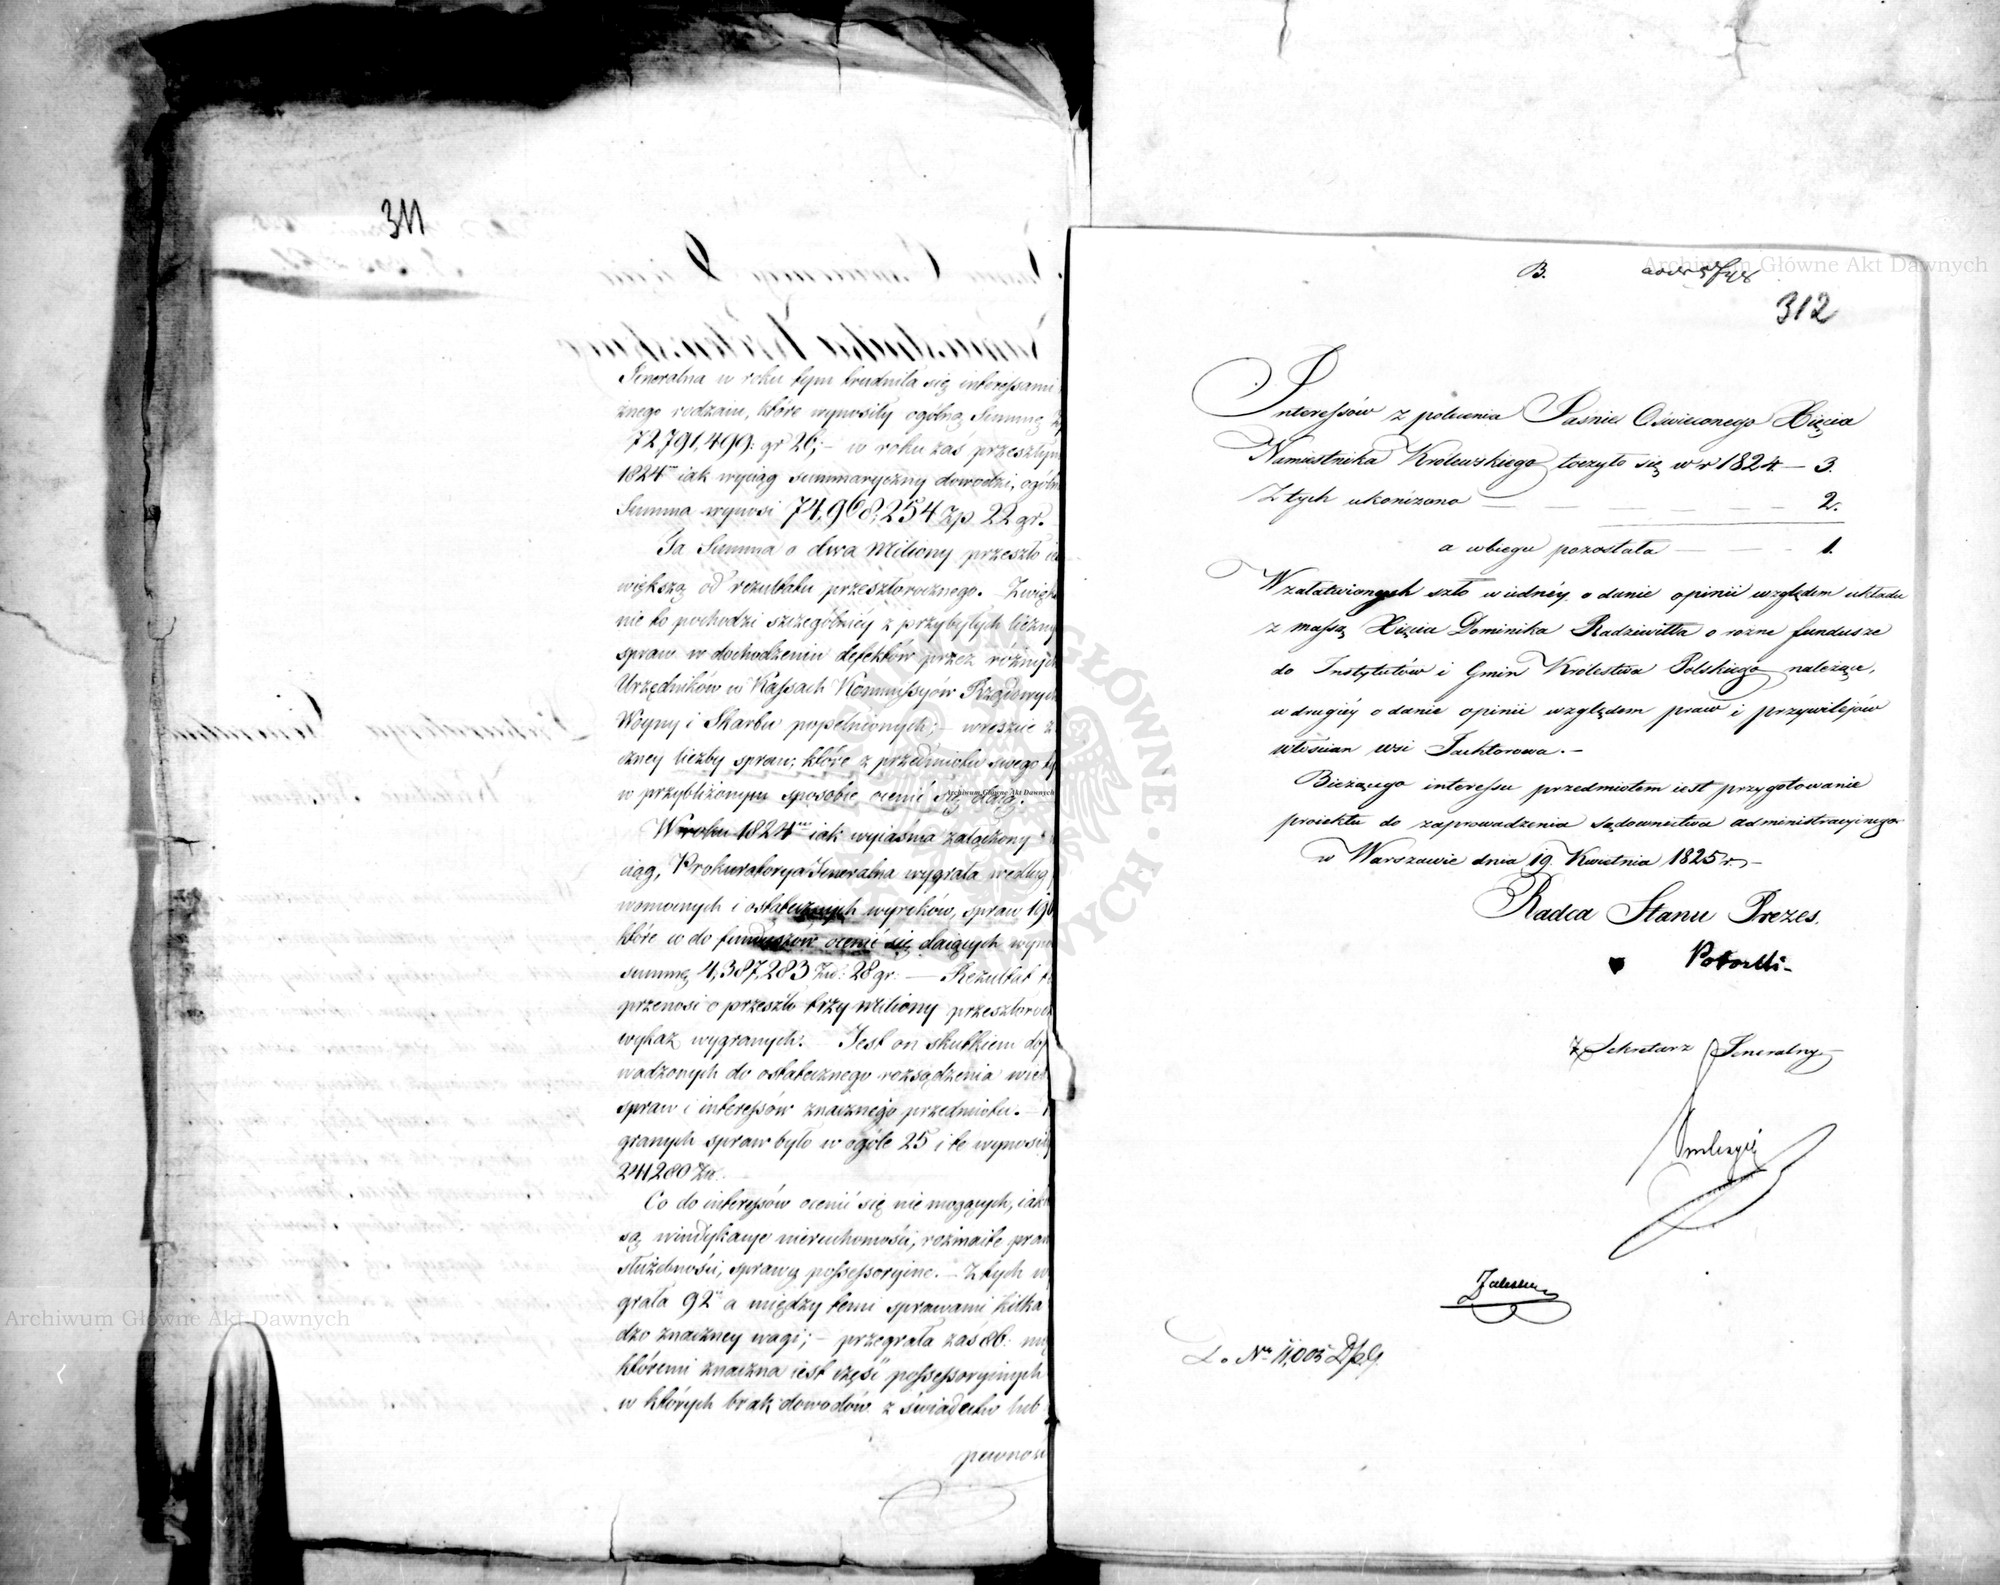 311
Jeneralna w roku tym trudniła się interessami
żnego rodzaiu, które wynosiły ogólną Summę Zp
72,791,499: gr 26;– w roku zaś przeszłym
1824ᵐ iak wyciąg summaryczny dowodzi, ogóln
Summa wynosi 74,968,254 Zp 22 gr.
Ta Summa o dwa Miliony przeszło ie
większą od rezultatu przeszłorocznego. – Zwięk
nie to pochodzi szczególniéy z przybyłych liczny
spraw w dochodzeniu defektów przez różnych
Urzędników w Kassach Kommissyów Rządowych
Woyny i Skarbu popełnionych; – wreszcie z
czney liczby spraw; które z przedmiotu swego ty
w przybliżonym sposobie ocenić się daią.
W roku 1824ᵐ iak wyiaśnia załączony
ciąg, Prokuratorya Jeneralna wygrała według
womocnych i ostatecznych wyroków, spraw 196
które w do funduszów ocenić się daiących wyno
summę 4,387,283 Złt: 28 gr: — Rezultat t
przenosi o przeszło trzy Miliony przeszłoroc
wykaz wygranych: Jest on skutkiem do
wadzonych do ostatecznego rozsądzenia wiel
spraw i interessów znacznego przedmiotu. –
granych spraw było w ogóle 25 i te wynosiły
211280 Zł.
Co do interessów ocenić się nie mogących, iak
są windykacye nieruchomości, rozmaite praw
służebności, sprawy possessoryine. – Z tych w
grała 92 a między temi sprawami kilka
dzo znaczney wagi; – przegrała zaś 86: mię
któremi znaczna iest część possessoryinych
w których brak dowodów z świadectw lub
pewnoś
B.
312
Interessów z polecenia Jaśnie Oświeconego Xięcia
Namiestnika Królewskiego toczyło się w r 1824 — 3.
Z tych ukończono — — — — — 2.
a w biegu pozostała — — — 1.
W załatwionych szło w iednéy o danie opinii względem układu
z massą Xięcia Dominika Radziwiłła o rozne fundusze
do Instytutów i Gmin Królestwa Polskiego należące,
w drugiéy o danie opinii względem praw i przywilejów
włościan wsi Jachtorowa. –
Bieżącego interessu przedmiotem iest przygotowanie
proiektu do zaprowadzenia sądownictwa administracyinego
w Warszawie dnia 19. Kwietnia 1825 r. –
Radca Stanu Prezes.
Sekretarz Jeneralny
Zaleski
D. Nr 11,005 DpG
Archiwum Główne Akt Dawnych
Archiwum Główne Akt Dawnych
Archiwum Główne Akt Dawnych